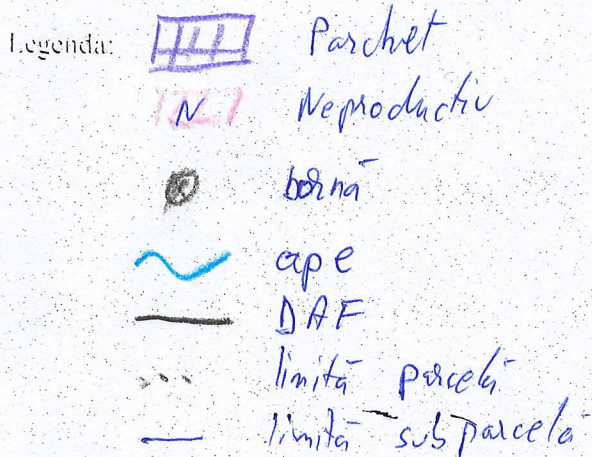 Legenda:
Parchet
N Neproductiv
bornă
ape
DAF
limită parcelă
limită subparcelă